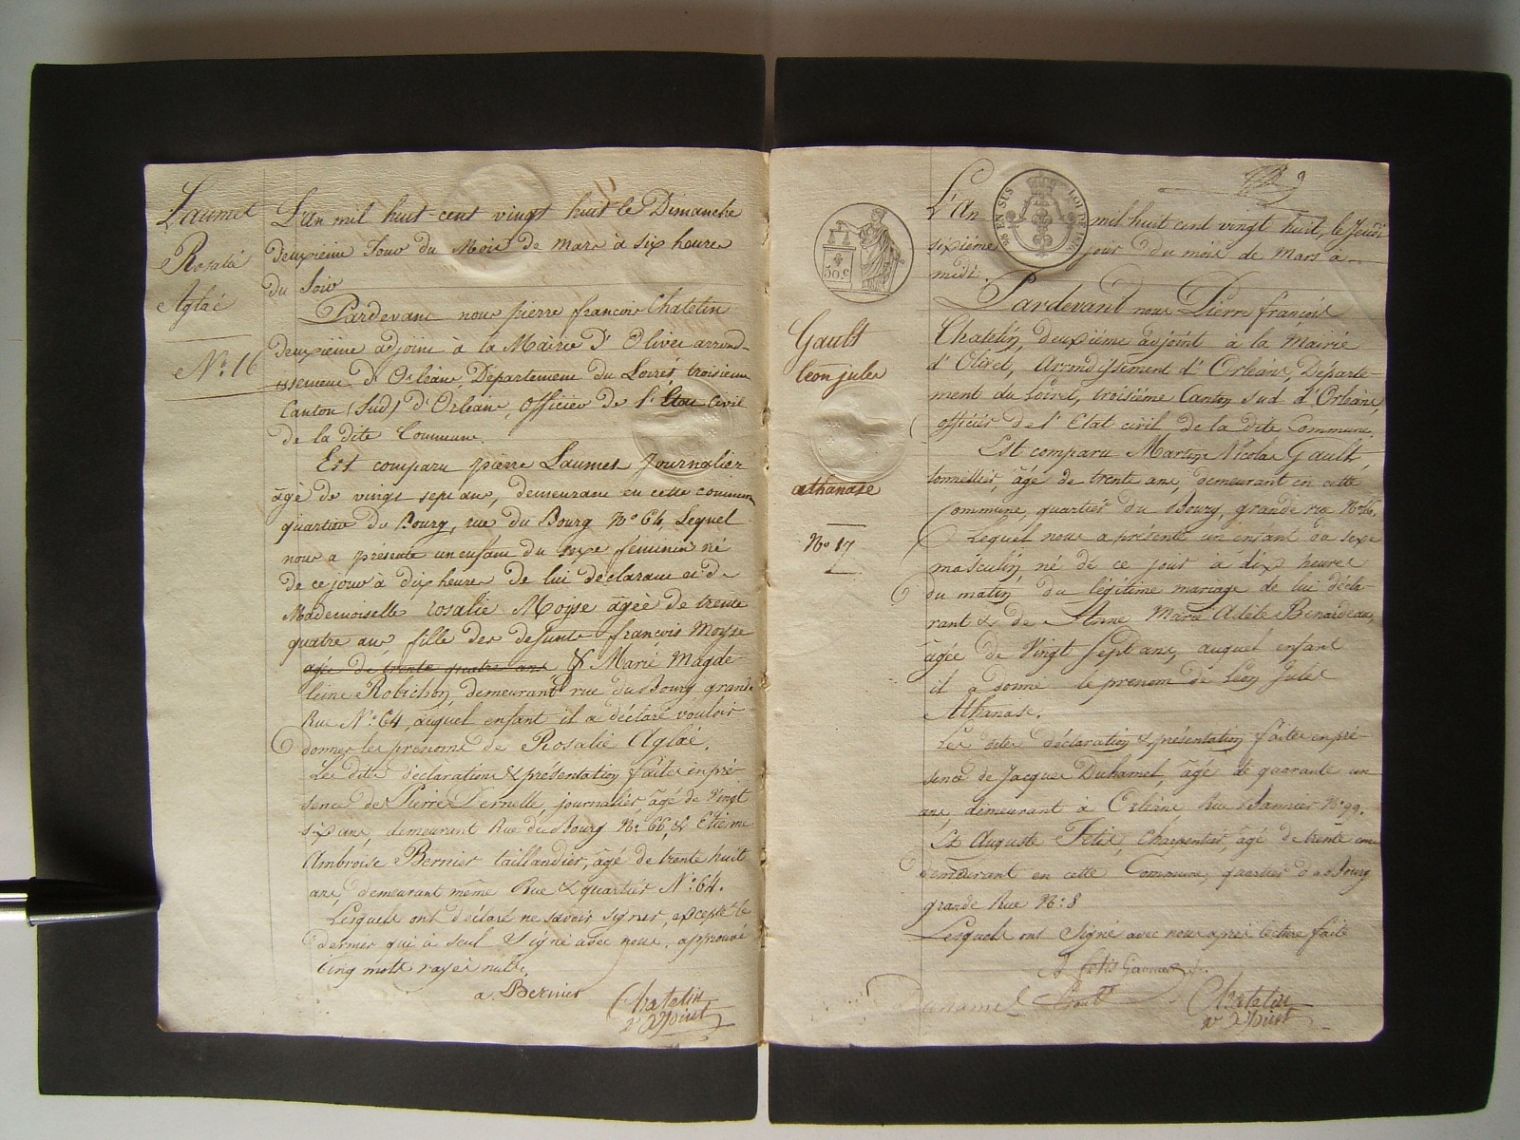 Laumet
Rosalie
Aglaé
N.° 16
L'an mil huit cent vingt huit le Dimanche
deuxieme Jour du Mois de mars à six heures
du Soir
Pardevant nous pierre francois Chatelin
deuxieme adjoint à la Mairie d'Olivet arrond-
issement d'Orleans, Département du Loiret troisieme
Canton (Sud) d'Orleans, officier de l'Etat Civil
de la dite Commune.
Est comparu pierre Laumet Journalier
âgé de vingt sept ans, demeurant en cette commune
quartier du Bourg, rue du Bourg N° 64, Lequel
nous a présenté un enfant du sexe feminin né
de ce jour à dix heures de lui déclarant et de
Mademoiselle rosalie Moyse âgée de trente
quatre ans, fille des defunts françois Moyse
agée de trente quatre ans & Marie Magde-
leine Robichon, demeurant rue du Bourg grande
Rue N.° 64, auquel enfant il a déclaré vouloir
donner les prénoms de Rosalie Aglaé.
Les dites déclaration & présentation faites en pré-
sence de Pierre journalier âgé de Vingt
six ans, demeurant Rue du Bourg N.° 66, & Etienne
Ambroise Bernier taillandier, âgé de trente huit
ans, demeurant même Rue & quartier N.° 64.
Lesquels ont déclaré ne savoir signer, excepté le
dernier qui à seul Signé avec nous. approuvé
cinq mots rayés nuls.
a Bernier
Chatelin
2e adjoint
L'An mil huit cent vingt huit, le Jeudi
sixième jour du mois de Mars à
midi.
EN SUS
30 c
Pardevant nous Pierre françois
Chatelin, deuxième adjoint à la Mairie
d'Olivet, Arrondissement d'Orléans, Départe-
ment du Loiret, troisième Canton sud d'Orléans,
officier de l'Etat civil de la dite Commune.
Gault
Léon jules
athanase
N° 17
Est comparu Martin Nicolas Gault,
tonnellier, âgé de trente ans, demeurant en cette
Commune, quartier du Bourg, grande rue
Lequel nous a présenté un enfant du sexe
masculin, né de ce jour à dix heures
du matin, du légitime mariage de lui décla-
rant & de Marie Adèle
âgée de Vingt sept ans, auquel enfant
il a donné le prenom de Léon Jules
Athanase.
Les dites déclaration & présentation faites en pré-
sence de Jacques Duhamel, âgé de quarante un
ans, demeurant à Orléans, Rue Bannier N.° 99.
Et Auguste Felix, Charpentier, âgé de trente ans
demeurant en cette Commune, quartier du Bourg
grande Rue N.° 8
Lesquels ont Signé avec nous après lecture faite
Duhamel Gault
Chatelin
2e adjoint